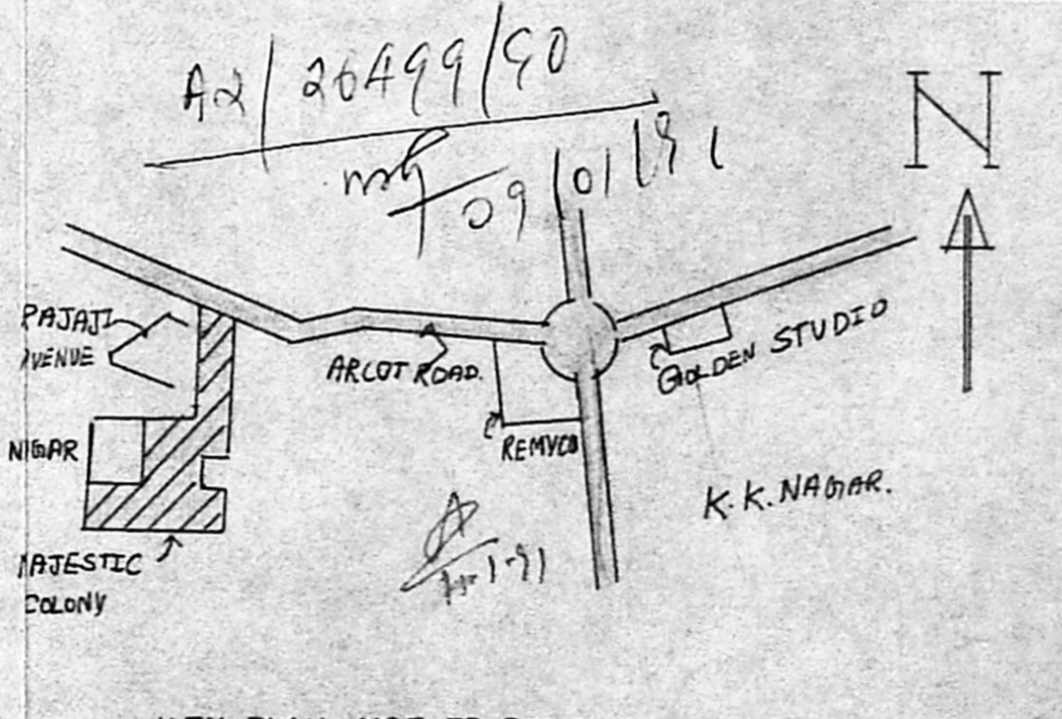 A2/26499/90
N
09/01/91
RAJAJI
AVENUE
ARCOT ROAD.
GOLDEN STUDIO
NAGAR
REMYCO
K.K. NAGAR.
MAJESTIC
COLONY